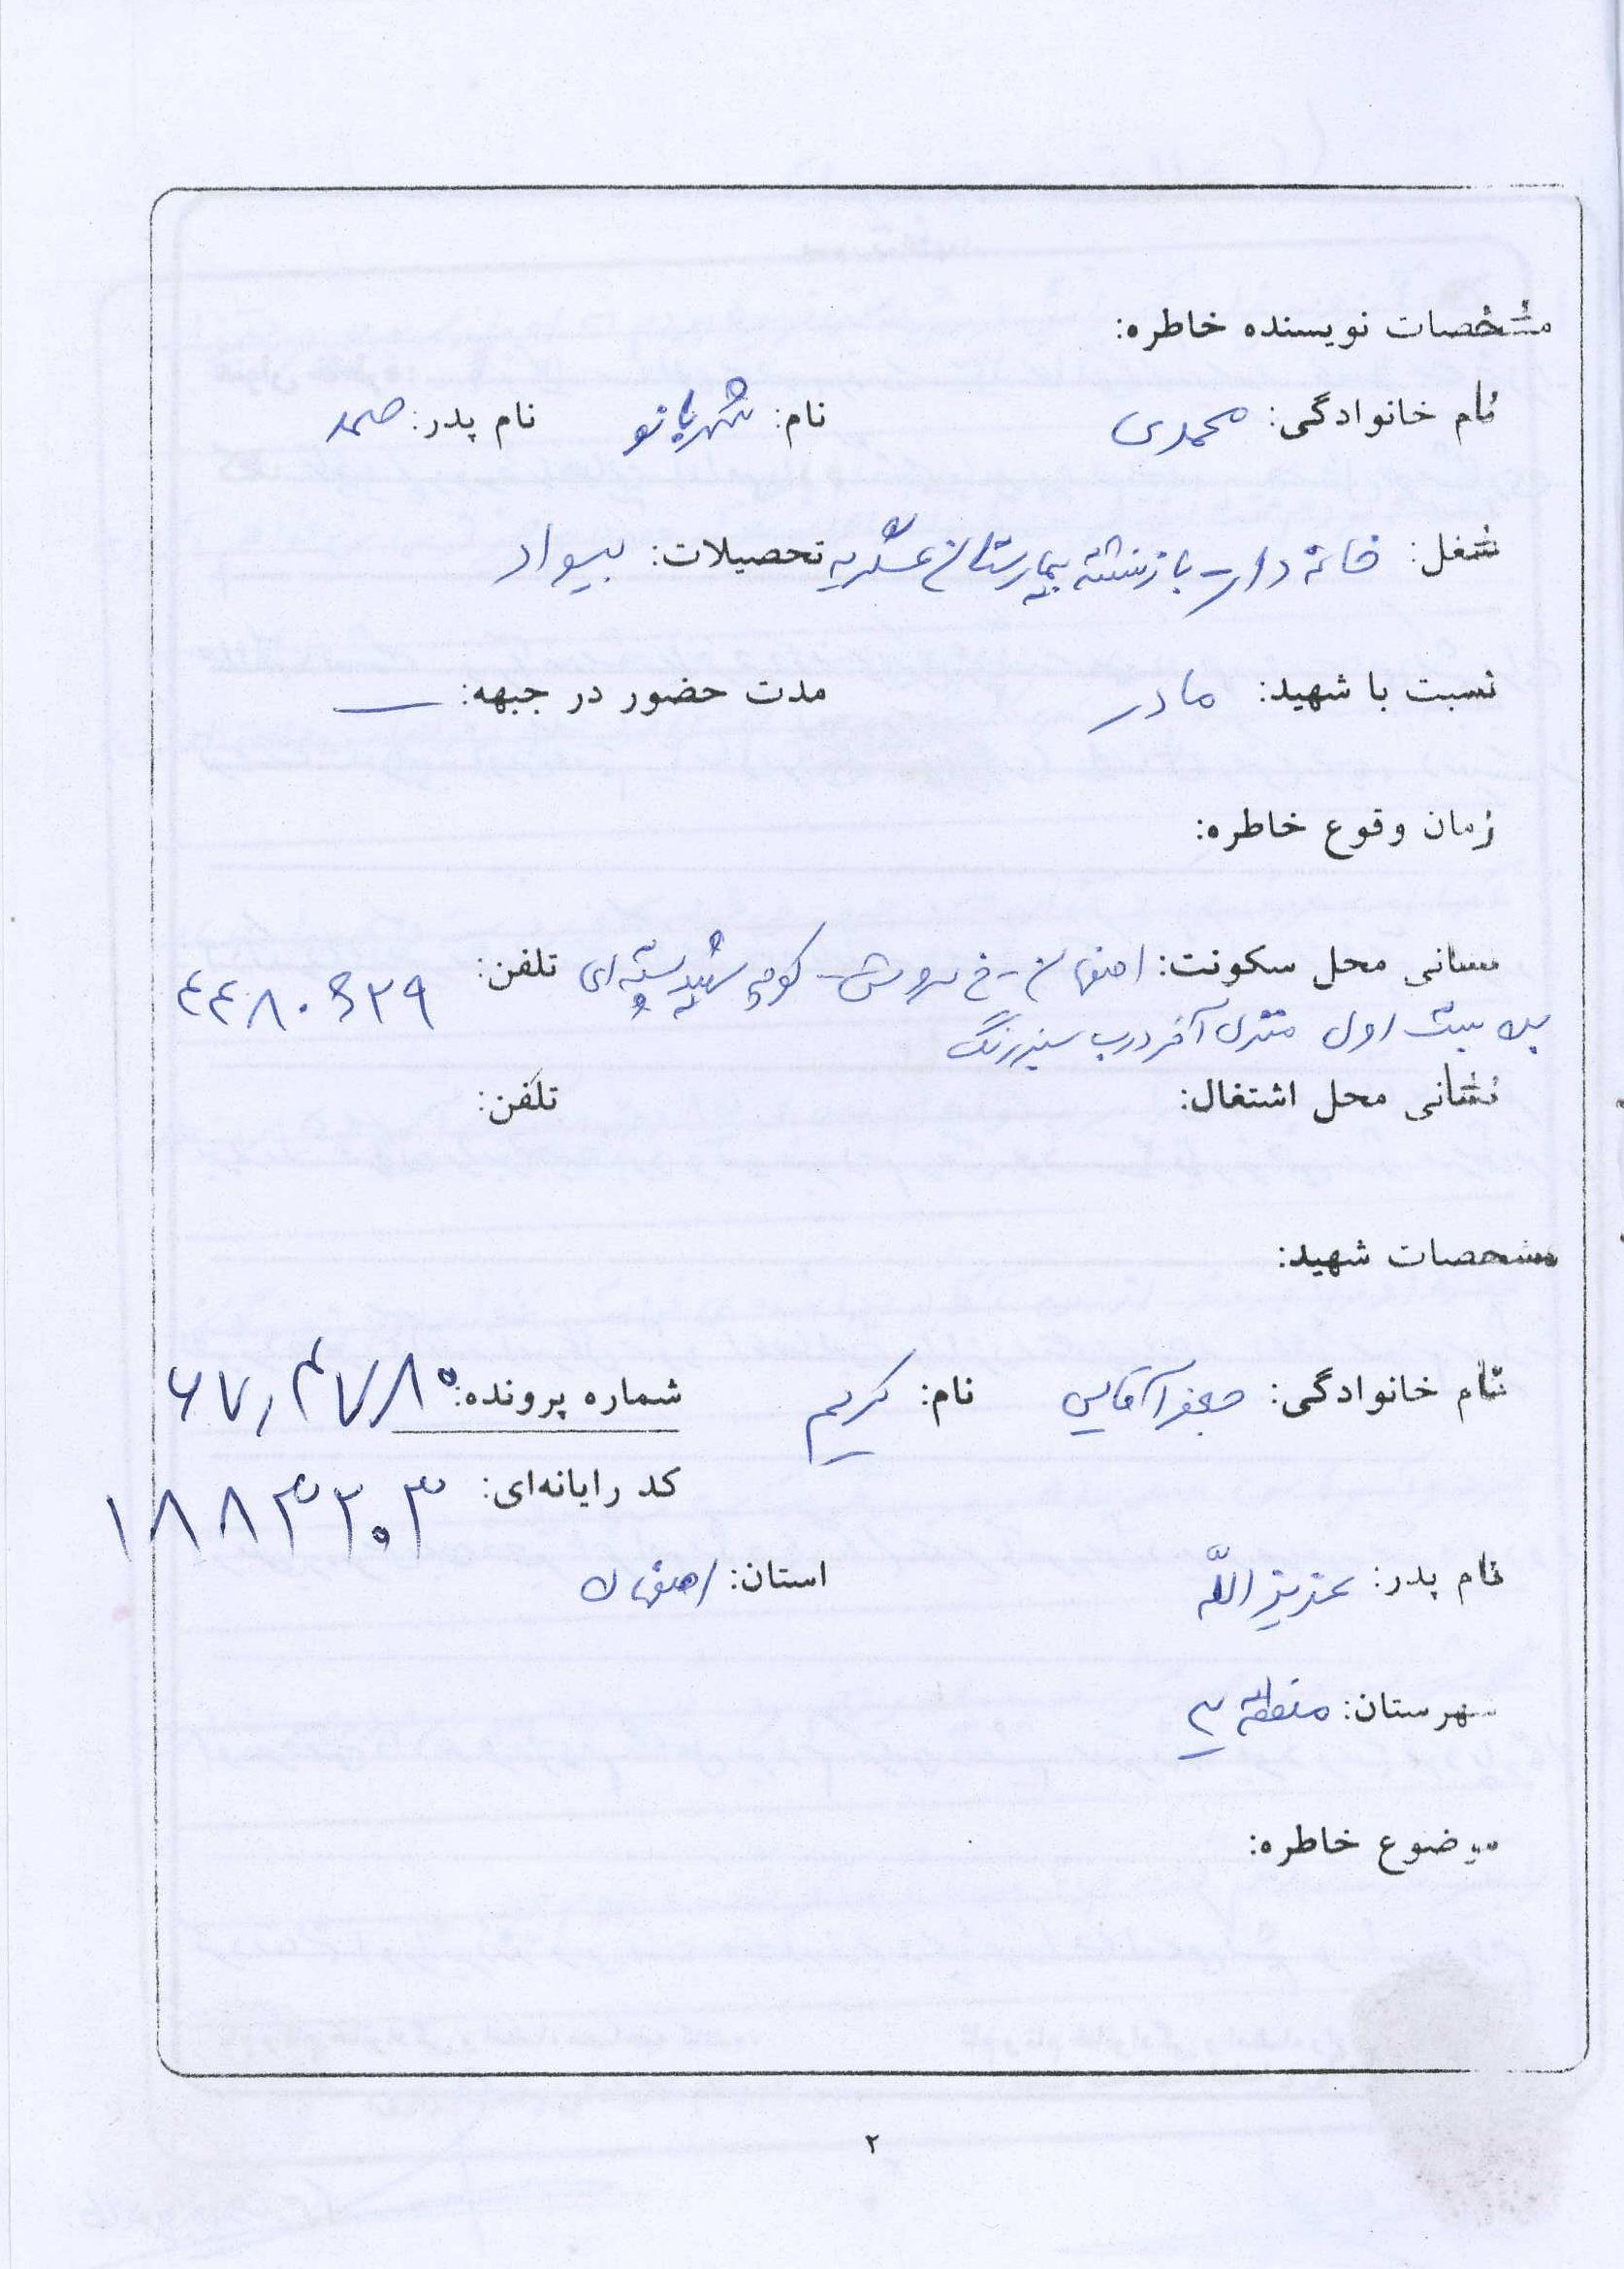 مشخصات نویسنده خاطره:
نام خانوادگی: محمدی نام: شهربانو نام پدر: صمد
شغل: خانه دار - بازنشسته بیمارستان عسگریه تحصیلات: بیسواد
نسبت با شهید: مادر مدت حضور در جبهه: —
زمان وقوع خاطره:
نشانی محل سکونت: اصفهان - خ سروش - کوچه شهید پسته ای تلفن: ۴۴۸۰۶۲۹
بن بست اول منزل آخر درب سبز رنگ
نشانی محل اشتغال: تلفن:
مشخصات شهید:
نام خانوادگی: جعفرآقایی نام: کریم شماره پرونده: ۶۷٫۴۷۸۰
کد رایانه‌ای: ۱۸۸۳۲۰۳
نام پدر: عزیزالله استان: اصفهان
شهرستان: منطقه ۳
موضوع خاطره:
۲